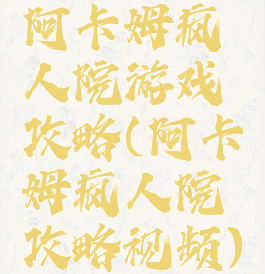 阿卡姆疯
人院游戏
攻略(阿卡
姆疯人院
攻略视频)